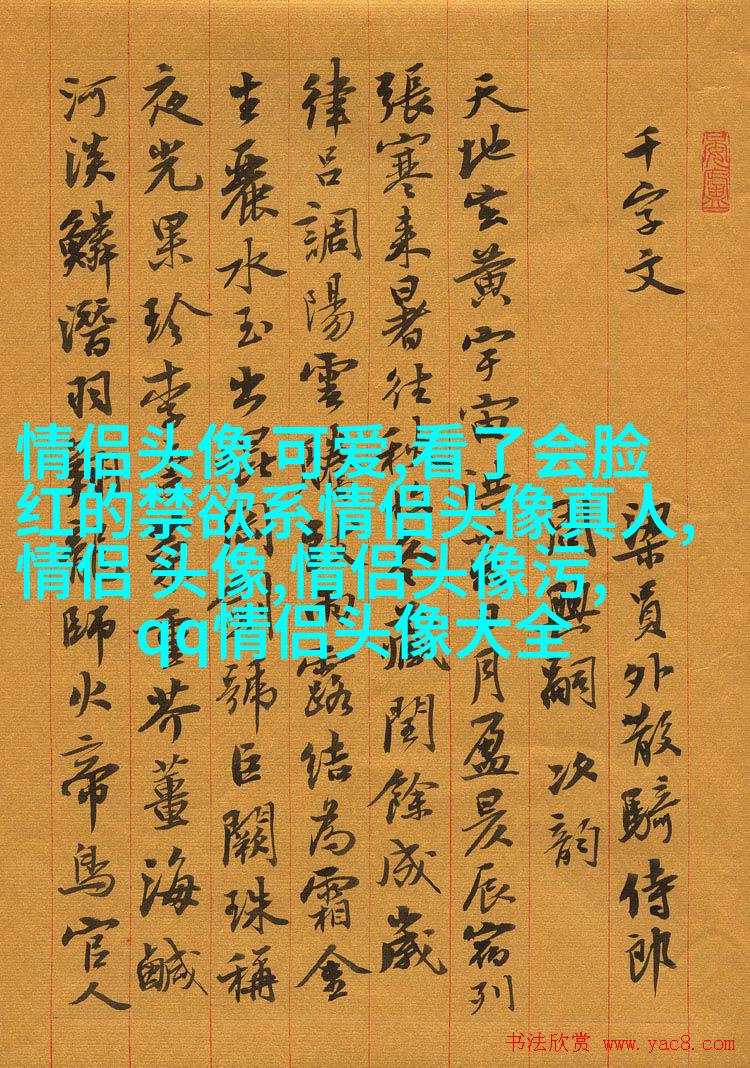 千字文 梁員外散騎侍郎
周興嗣 次韵
天地玄黃宇宙洪荒日月盈昃辰宿列
張寒来暑往秋收冬藏閏餘成歲
律呂調陽雲騰致雨露結為霜金
生麗水玉出崑岡劍號巨闕珠稱
夜光果珍李柰菜重芥薑海鹹
河淡鱗潛羽翔龍師火帝鳥官人
情侣头像 可爱,看了会脸
红的禁欲系情侣头像真人,
情侣 头像,情侣头像污,
qq情侣头像大全
书法欣赏 www.yac8.com